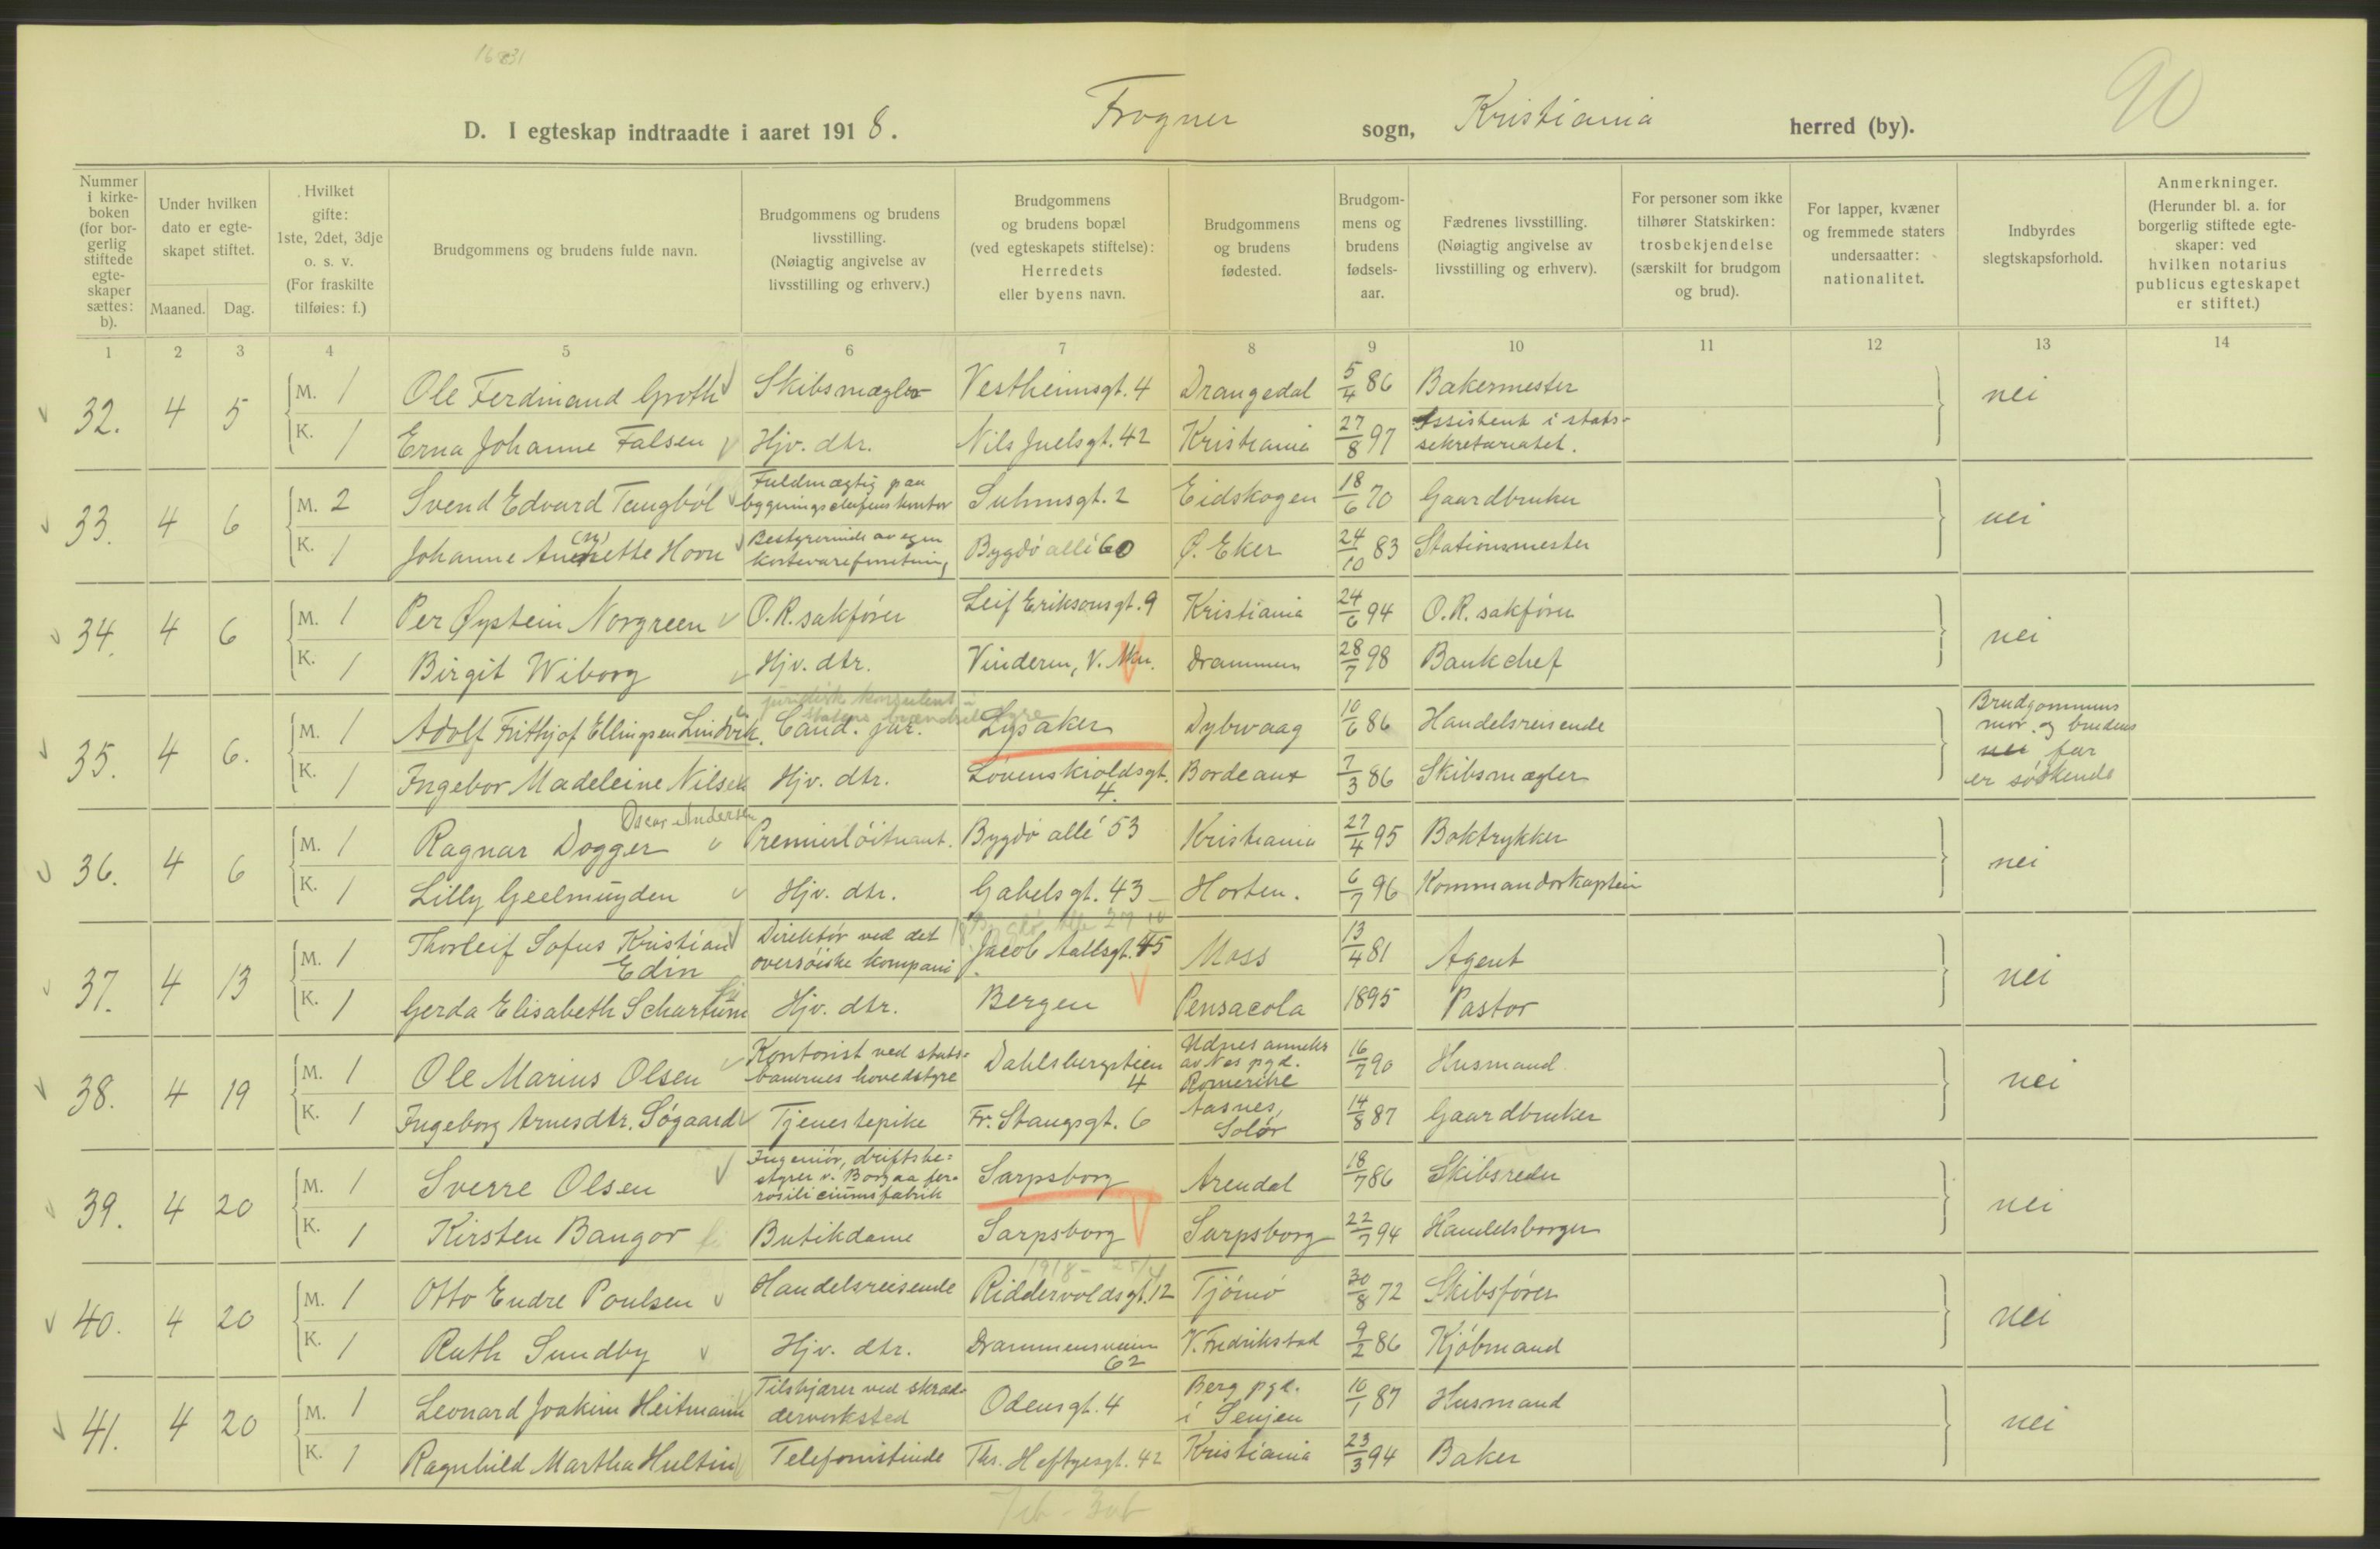 90
D. I egteskap indtraadte i aaret 1918. Frogner sogn, Kristiania herred (by).
Nummer i kirkeboken (for borgerlig stiftede egteskaper sættes: b).
Under hvilken dato er egteskapet stiftet.
Maaned. Dag.
Hvilket gifte: 1ste, 2det, 3dje o. s. v. (For fraskilte tilføies: f.)
Brudgommens og brudens fulde navn.
Brudgommens og brudens livsstilling. (Nøiagtig angivelse av livsstilling og erhverv.)
Brudgommens og brudens bopæl (ved egteskapets stiftelse): Herredets eller byens navn.
Brudgommens og brudens fødested.
Brudgommens og brudens fødselsaar.
Fædrenes livsstilling. (Nøiagtig angivelse av livsstilling og erhverv).
For personer som ikke tilhører Statskirken: trosbekjendelse (særskilt for brudgom og brud).
For lapper, kvæner og fremmede staters undersaatter: nationalitet.
Indbyrdes slegtskapsforhold.
Anmerkninger. (Herunder bl. a. for borgerlig stiftede egteskaper: ved hvilken notarius publicus egteskapet er stiftet.)
1 2 3 4 5 6 7 8 9 10 11 12 13 14
32. 4 5 M. 1 Ole Ferdinand Groth Skibsmægler Vestheimsgt. 4 Drangedal 5/4 86 Bakermester nei
K. 1 Erna Johanne Falsen Hjv. dtr. Nils Juelsgt. 42 Kristiania 27/8 97 Assistent i stats-sekretariatet.
33. 4 6 M. 2 Svend Edvard Taugbøl Fuldmægtig paa bygningschefens kontor Suhmsgt. 2 Eidskogen 18/6 70 Gaardbruker nei
K. 1 Johanne Annette (n) Hovn Bestyrerinde av egen kortevareforretning Bygdø allé 60 Ø. Eker 24/10 83 Stationsmester
34. 4 6 M. 1 Per Øystein Norgreen O.R. sakfører Leif Eriksonsgt. 9 Kristiania 24/6 94 O.R. sakfører nei
K. 1 Birgit Wiborg Hjv. dtr. Vinderen, V. Akr. Drammen 28/7 98 Bankchef
35. 4 6. M. 1 Adolf Frithjof Ellingsen Lindvik. Cand. jur. juridisk konsulent i statens brændselstyre Lysaker Dybvaag 10/6 86 Handelsreisende Brudgommens mor og brudens nei far er søskende
K. 1 Ingebor Madeleine Nilsen Hjv. dtr. Løvenskioldsgt. 4. Bordeaux 7/3 86 Skibsmægler
36. 4 6 M. 1 Ragnar Oscar Andersen Dogger Premierløitnant. Bygdø allé 53 Kristiania 27/4 95 Boktrykker nei
K. 1 Lilly Geelmuyden Hjv. dtr. Gabelsgt. 43 Horten. 6/7 96 Kommandørkaptein
37. 4 13 M. 1 Thorleif Sofus Kristian Edin Direktør ved det oversøiske kompani Jacob Aallsgt. 45 Moss 13/4 81 Agent nei
K. 1 Gerda Elisabeth Schartum Hjv. dtr. Bergen Pensacola 1895 Pastor
38. 4 19 M. 1 Ole Marius Olsen Kontorist ved statsbanernes hovedstyre Dahlsbergstien 4 Udnes anneks av Nes pgd. Romerike 16/7 90 Husmand nei
K. 1 Ingeborg Arnesdtr. Søgaard Tjenestepike Fr. Stangsgt. 6 Aasnes, Solør 14/8 87 Gaardbruker
39. 4 20 M. 1 Sverre Olsen Ingeniør, driftsbestyrer v. Borgaa ferrosiliciumsfabrik Sarpsborg Arendal 18/7 86 Skibsreder nei
K. 1 Kirsten Bangor Butikdame Sarpsborg Sarpsborg 22/7 94 Handelsborger
40. 4 20 M. 1 Otto Endre Poulsen Handelsreisende Riddervoldsgt. 12 Tjømø 30/8 72 Skibsfører nei
K. 1 Ruth Sundby Hjv. dtr. Drammensveien 62 V. Fredrikstad 9/2 86 Kjøbmand
41. 4 20 M. 1 Leonard Joakim Heitmann Tilskjærer ved skrædderverksted Odensgt. 4 Berg pgd. i Senjen 10/1 87 Husmand nei
K. 1 Ragnhild Martha Hultin Telefonistinde Ths. Heftyesgt. 42 Kristiania 23/3 94 Baker